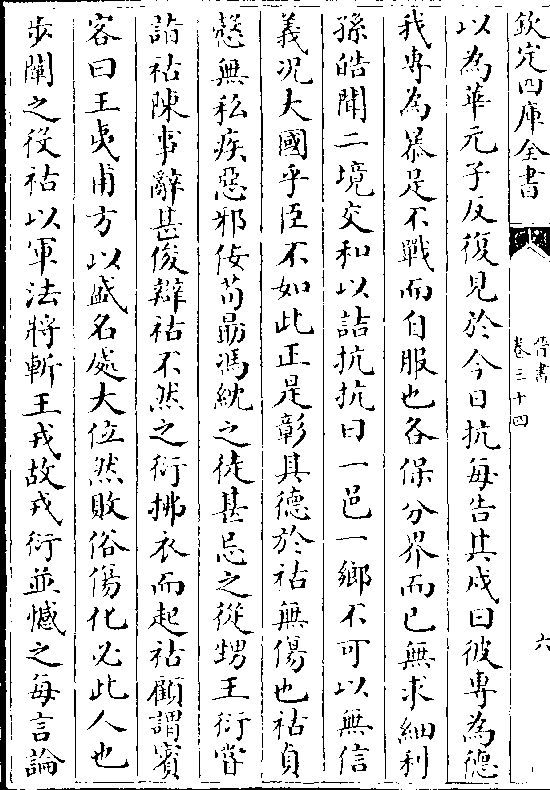 欽定四庫全書
晉書
卷三十四
六
以為華元子反復見於今日抗每告其戍曰彼專為德
我專為暴是不戰而自服也各保分界而已無求細利
孫皓聞二境交和以詰抗抗曰一邑一鄉不可以無信
義况大國乎臣不如此正是彰其德於祜無傷也祜貞
慤無私疾惡邪佞荀勗馮紞之徒甚忌之從甥王衍嘗
詣祜陳事辭甚俊辯祜不然之衍拂衣而起祜顧謂賓
客曰王夷甫方以盛名處大位然敗俗傷化必此人也
步闡之役祜以軍法將斬王戎故戎衍並憾之每言論